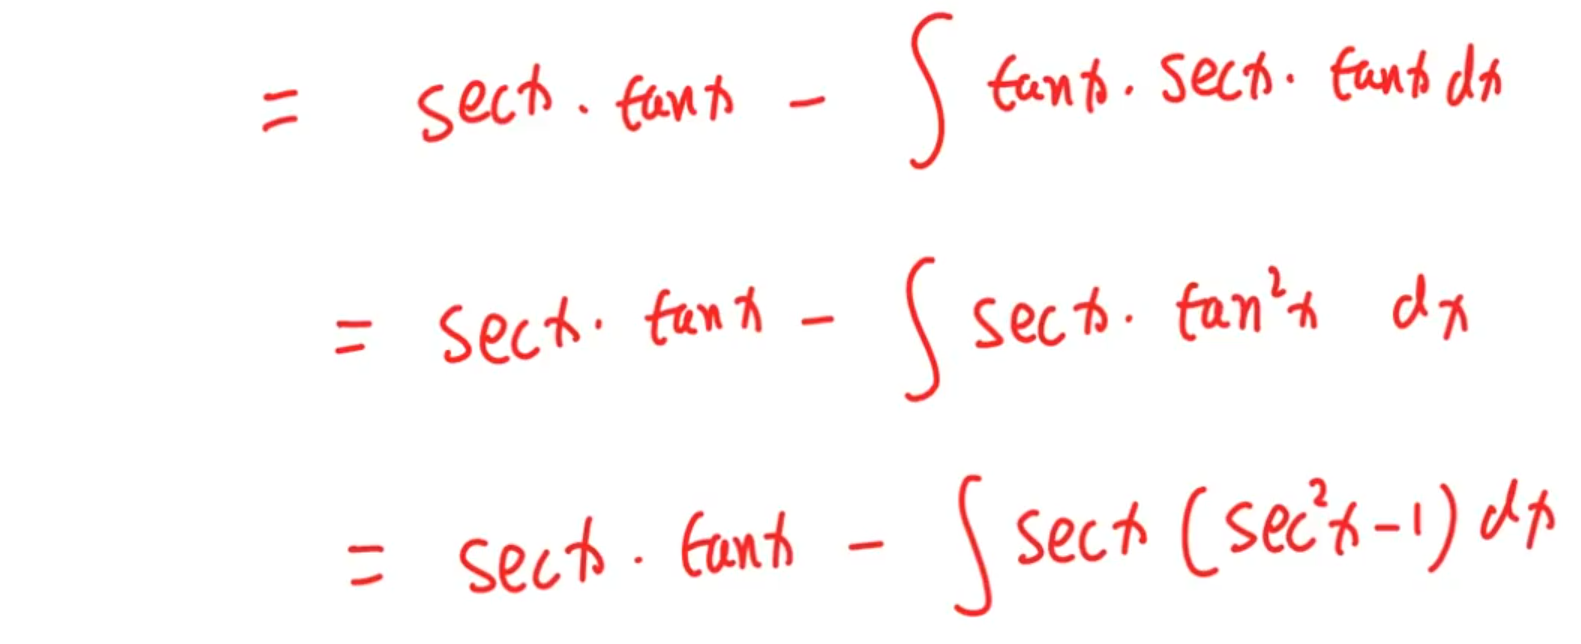 = secx · tanx - ∫ tanx · secx · tanx dx
= secx · tanx - ∫ secx · tan²x dx
= secx · tanx - ∫ secx (sec²x - 1) dx